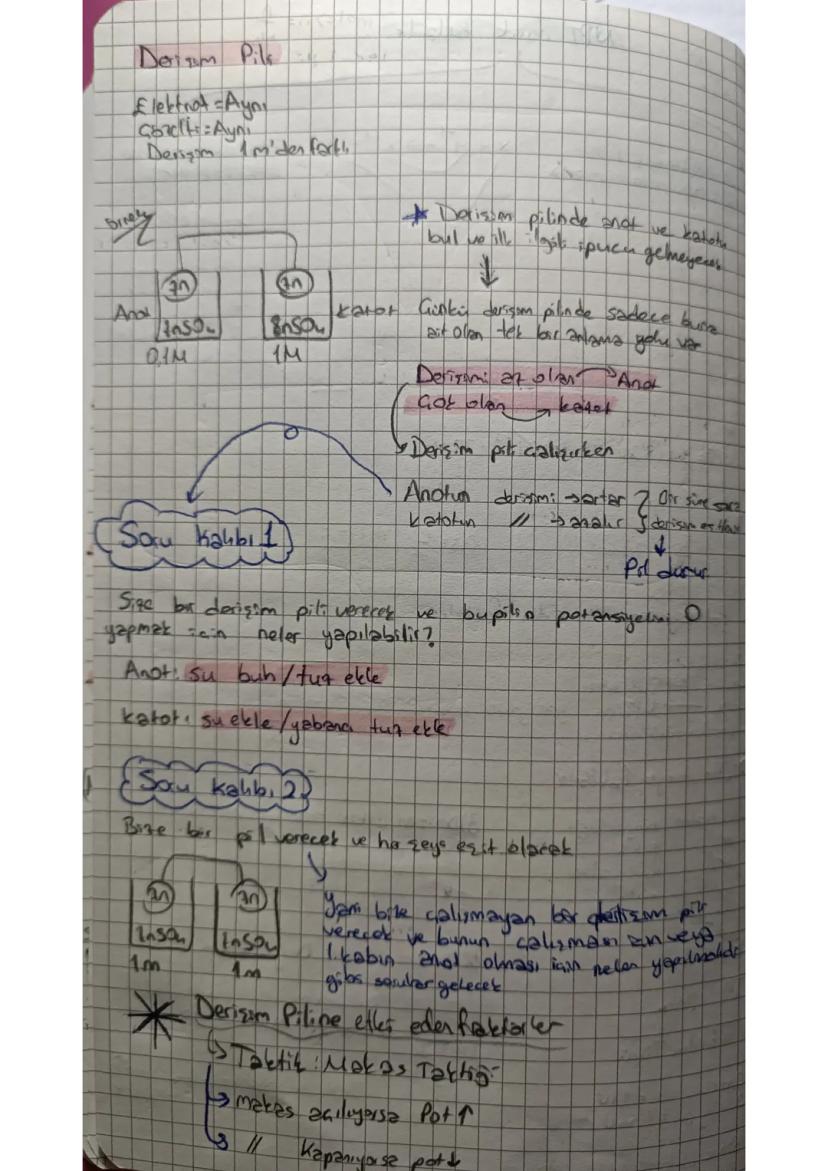 Derişim Pili
Elektrot = Aynı
Çözelti = Aynı
Derişim 1m'den farklı
Örnek
Zn Zn
Anot ZnSO₄ ZnSO₄ Katot
0,1M 1M
* Derişim pilinde anot ve katotu
bul ve ilk ilgili ipucu gelmeyecek
Çünkü derişim pilinde sadece buna
ait olan tek bir anlama yolu var
Derişimi az olan → Anot
Çok olan → katot
Derişim pili çalışırken
Anotun derişimi → artar } Bir süre sonra
Katotun // → azalır } derişim eşitlenir
Pil durur
Soru Kalıbı 1
Size bir derişim pili verecek ve bu pilin potansiyelini 0
yapmak için neler yapılabilir?
Anot: su buh/tuz ekle
Katot: su ekle/yabancı tuz ekle
Soru Kalıbı 2
Bize bir pil verecek ve her şeyi eşit olacak
Zn Zn
ZnSO₄ ZnSO₄
1m 1m
Yani bize çalışmayan bir derişim pili
verecek ve bunun çalışması için veya
1. kabın anot olması için neler yapılmalıdır
gibi sorular gelecek
* Derişim Piline etki eden faktörler
↳ Taktik: Makas Taktiği
→ makas açılıyorsa Pot ↑
→ // Kapanıyorsa pot ↓